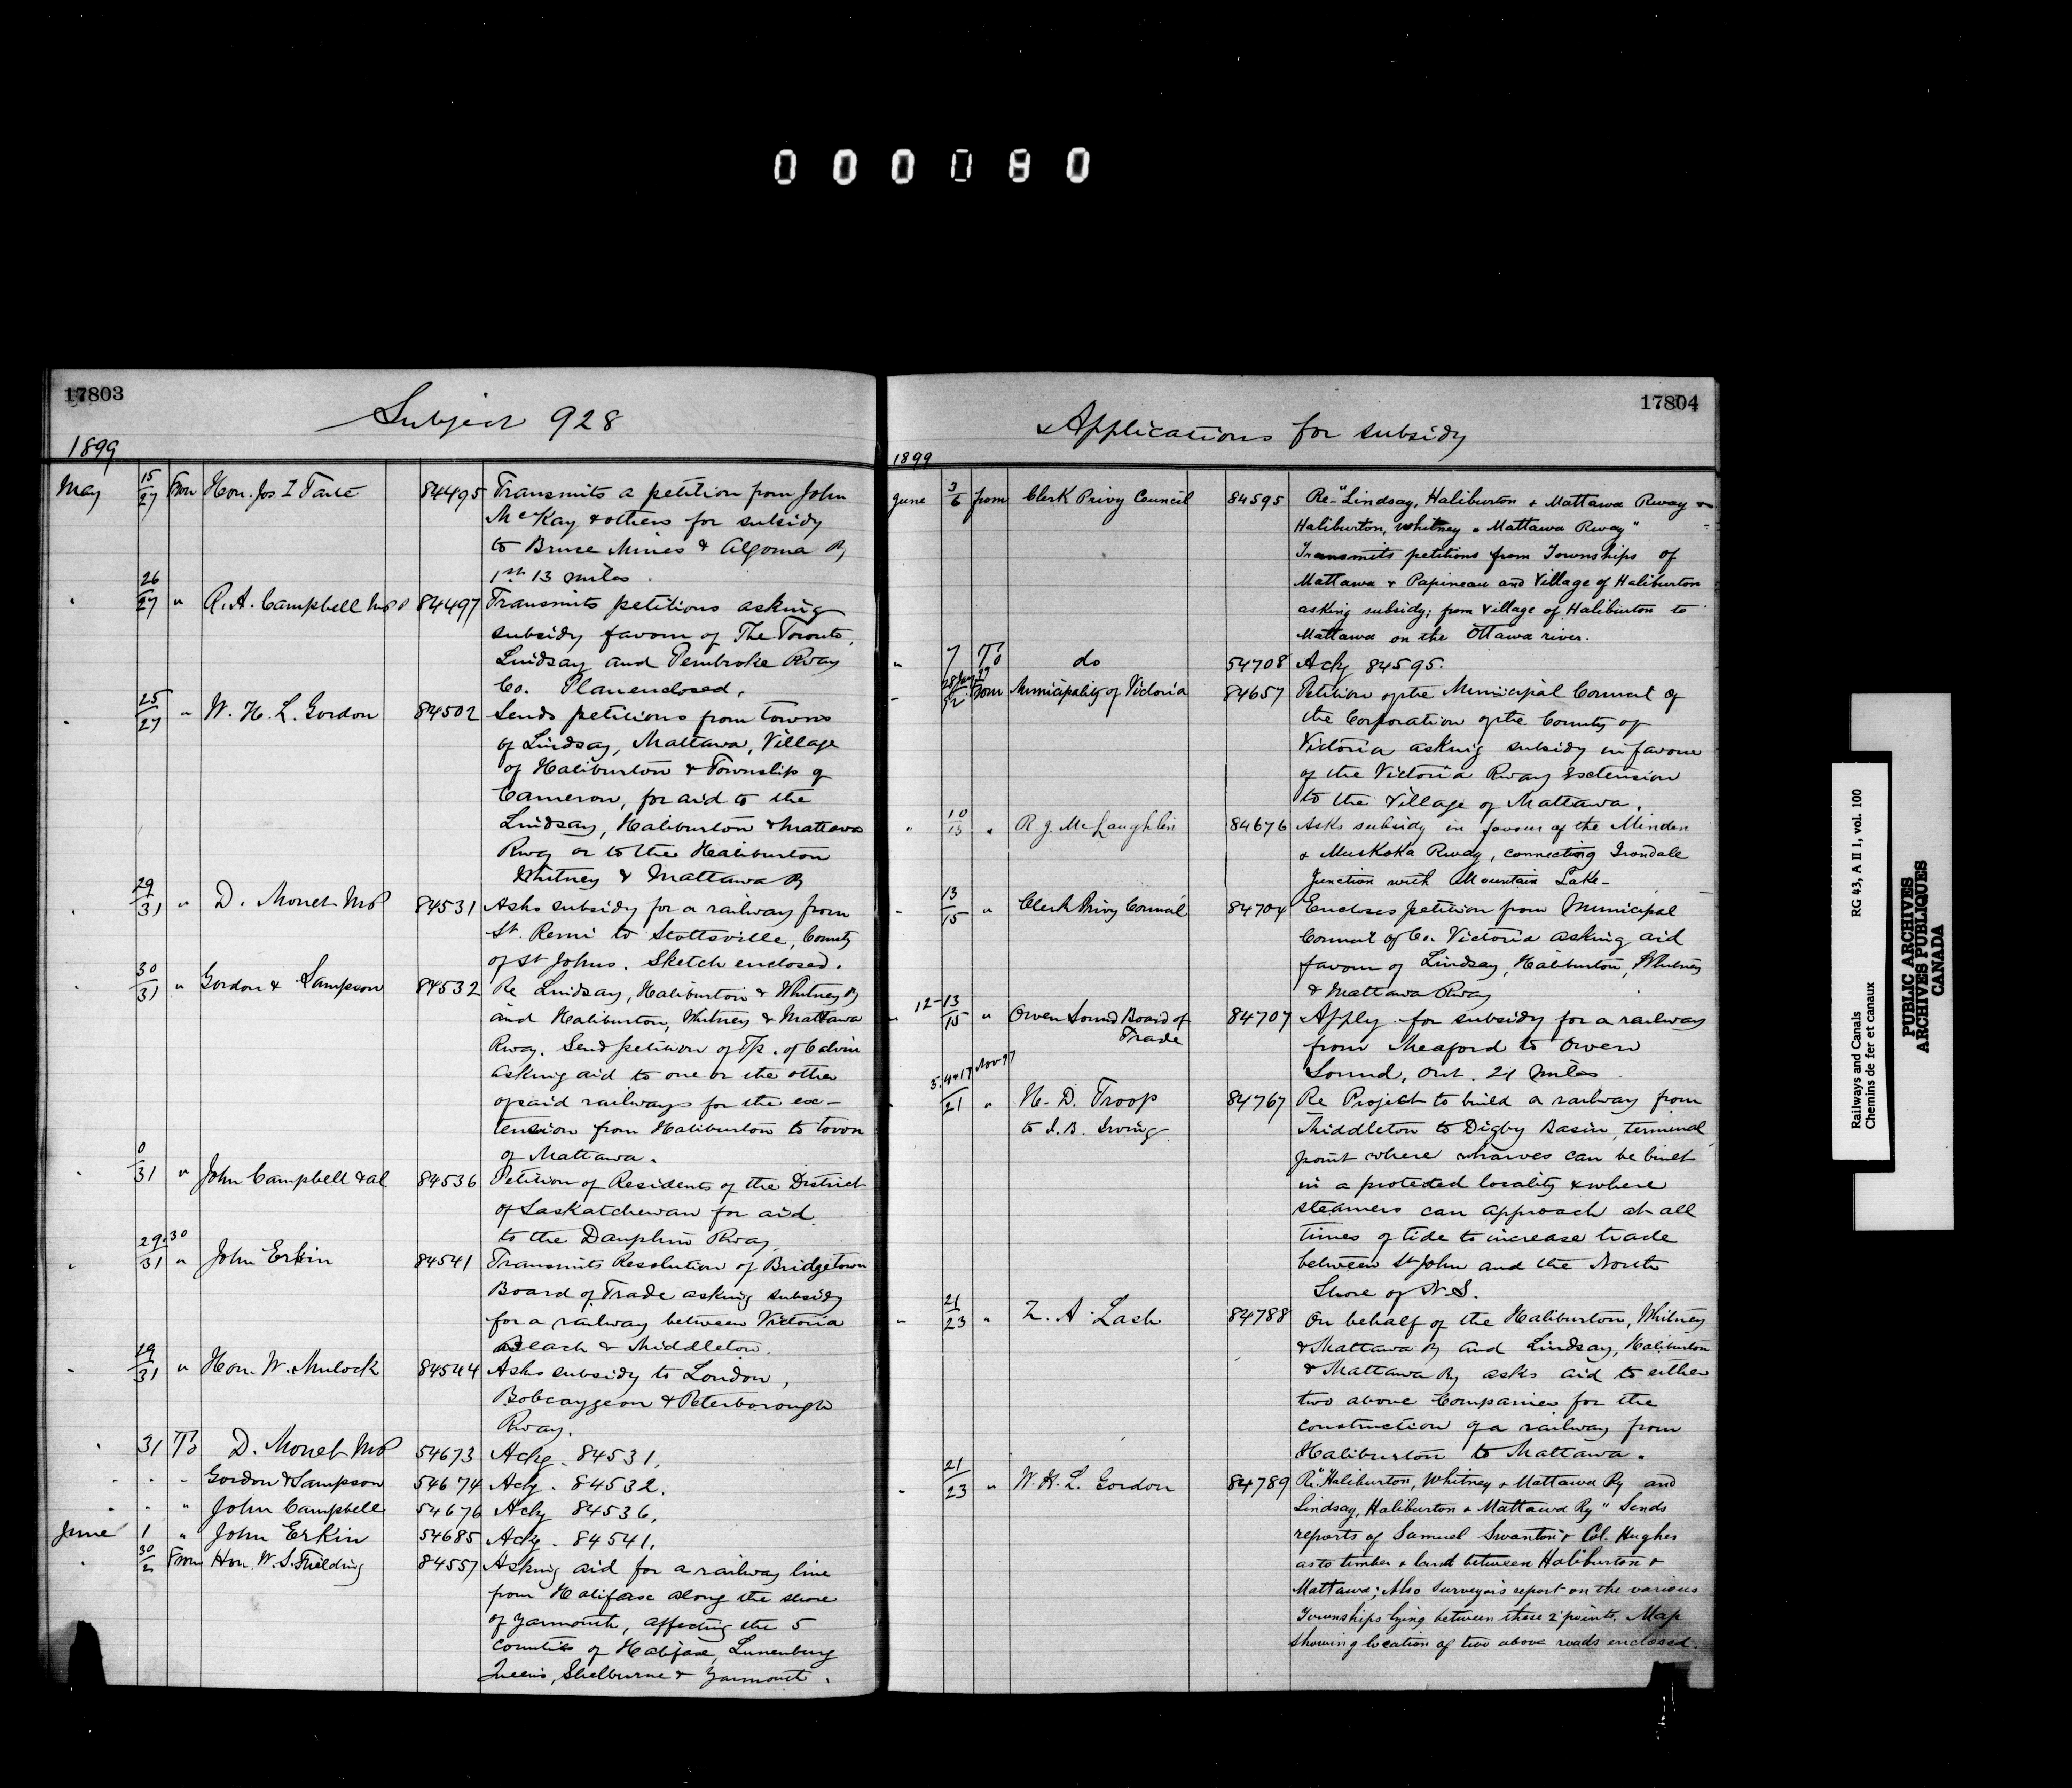 000080
17803
Subject 928
1899
May 15/27 From Hon. Jos I Tarte 84495 Transmits a petition from John
McKay & others for subsidy
to Bruce Mines & Algoma Ry
1st 13 miles.
" 26/27 " R. A. Campbell MP 84497 Transmits petitions asking
subsidy favour of The Toronto,
Lindsay and Pembroke Rway
Co. Plan enclosed.
" 25/27 " W. H. L. Gordon 84502 Sends petitions from towns
of Lindsay, Mattawa, Village
of Haliburton & Township of
Cameron, for aid to the
Lindsay, Haliburton & Mattawa
Rway or to the Haliburton
Whitney & Mattawa Ry
" 29/31 " D. Monet MP 84531 Asks subsidy for a railway from
St. Remi to Stottsville, County
of St Johns. Sketch enclosed.
" 30/31 " Gordon & Sampson 84532 Re Lindsay, Haliburton & Whitney Ry
and Haliburton, Whitney & Mattawa
Rway. Send petition of Tp. of Calvin
asking aid to one or the other
of said railways for the ex-
tension from Haliburton to town
of Mattawa.
" 0/31 " John Campbell & al 84536 Petition of Residents of the District
of Saskatchewan for aid
to the Dauphin Rway
" 29.30/31 " John Erkin 84541 Transmits Resolution of Bridgetown
Board of Trade asking subsidy
for a railway between Victoria
Beach & Middleton.
" 29/31 " Hon. W. Mulock 84544 Asks subsidy to London,
Bobcaygeon & Peterborough
Rway.
" 31 To D. Monet MP 54673 Ackg. 84531.
" " " Gordon & Sampson 54674 Ackg. 84532.
" " " John Campbell 54676 Ackg 84536.
June 1 " John Erkin 54685 Ackg. 84541.
" 30/2 From Hon. W. S. Fielding 84557 Asking aid for a railway line
from Halifax along the shore
of Yarmouth, affecting the 5
counties of Halifax, Lunenburg
Queens, Shelburne & Yarmouth.
17804
Applications for subsidy
1899
June 3/6 from Clerk Privy Council 84595 Re "Lindsay, Haliburton & Mattawa Rway &
Haliburton, Whitney & Mattawa Rway"
Transmits petitions from Townships of
Mattawa & Papineau and Village of Haliburton
asking subsidy; from Village of Haliburton to
Mattawa on the Ottawa river.
" 7 To do 54708 Ackg 84595.
" From Municipality of Victoria 84657 Petition of the Municipal Council of
the Corporation of the County of
Victoria asking subsidy in favour
of the Victoria Rway Extension
to the Village of Mattawa.
" 10/13 " R. J. McLaughlin 84676 Asks subsidy in favour of the Minden
& Muskoka Rway, connecting Irondale
Junction with Mountain Lake-
" 13/15 " Clerk Privy Council 84704 Encloses petition from Municipal
Council of Co. Victoria asking aid
favour of Lindsay, Haliburton, Whitney
& Mattawa Rway
" 12-13/15 " Owen Sound Board of
Trade 84707 Apply for subsidy for a railway
from Meaford to Owen
Sound, Ont. 21 miles
" 5.4&17 Nov 97/21 " H. D. Troop
to I. B. Irving 84767 Re Project to build a railway from
Middleton to Digby Basin, terminal
point where wharves can be built
in a protected locality & where
steamers can approach at all
times of tide to increase trade
between St John and the North
Shore of N.S.
" 21/23 " Z. A. Lash 84788 On behalf of the Haliburton, Whitney
& Mattawa Ry and Lindsay, Haliburton
& Mattawa Ry asks aid to either
two above Companies for the
construction of a railway from
Haliburton to Mattawa.
" 21/23 " W. H. L. Gordon 84789 Re "Haliburton, Whitney & Mattawa Ry and
Lindsay, Haliburton & Mattawa Ry" Sends
reports of Samuel Swanton & Col. Hughes
as to timber & land between Haliburton &
Mattawa; Also Surveyors report on the various
Townships lying between these 2 points. Map
showing location of two above roads enclosed.
Railways and Canals RG 43, A II 1, vol. 100
Chemins de fer et canaux
PUBLIC ARCHIVES
ARCHIVES PUBLIQUES
CANADA